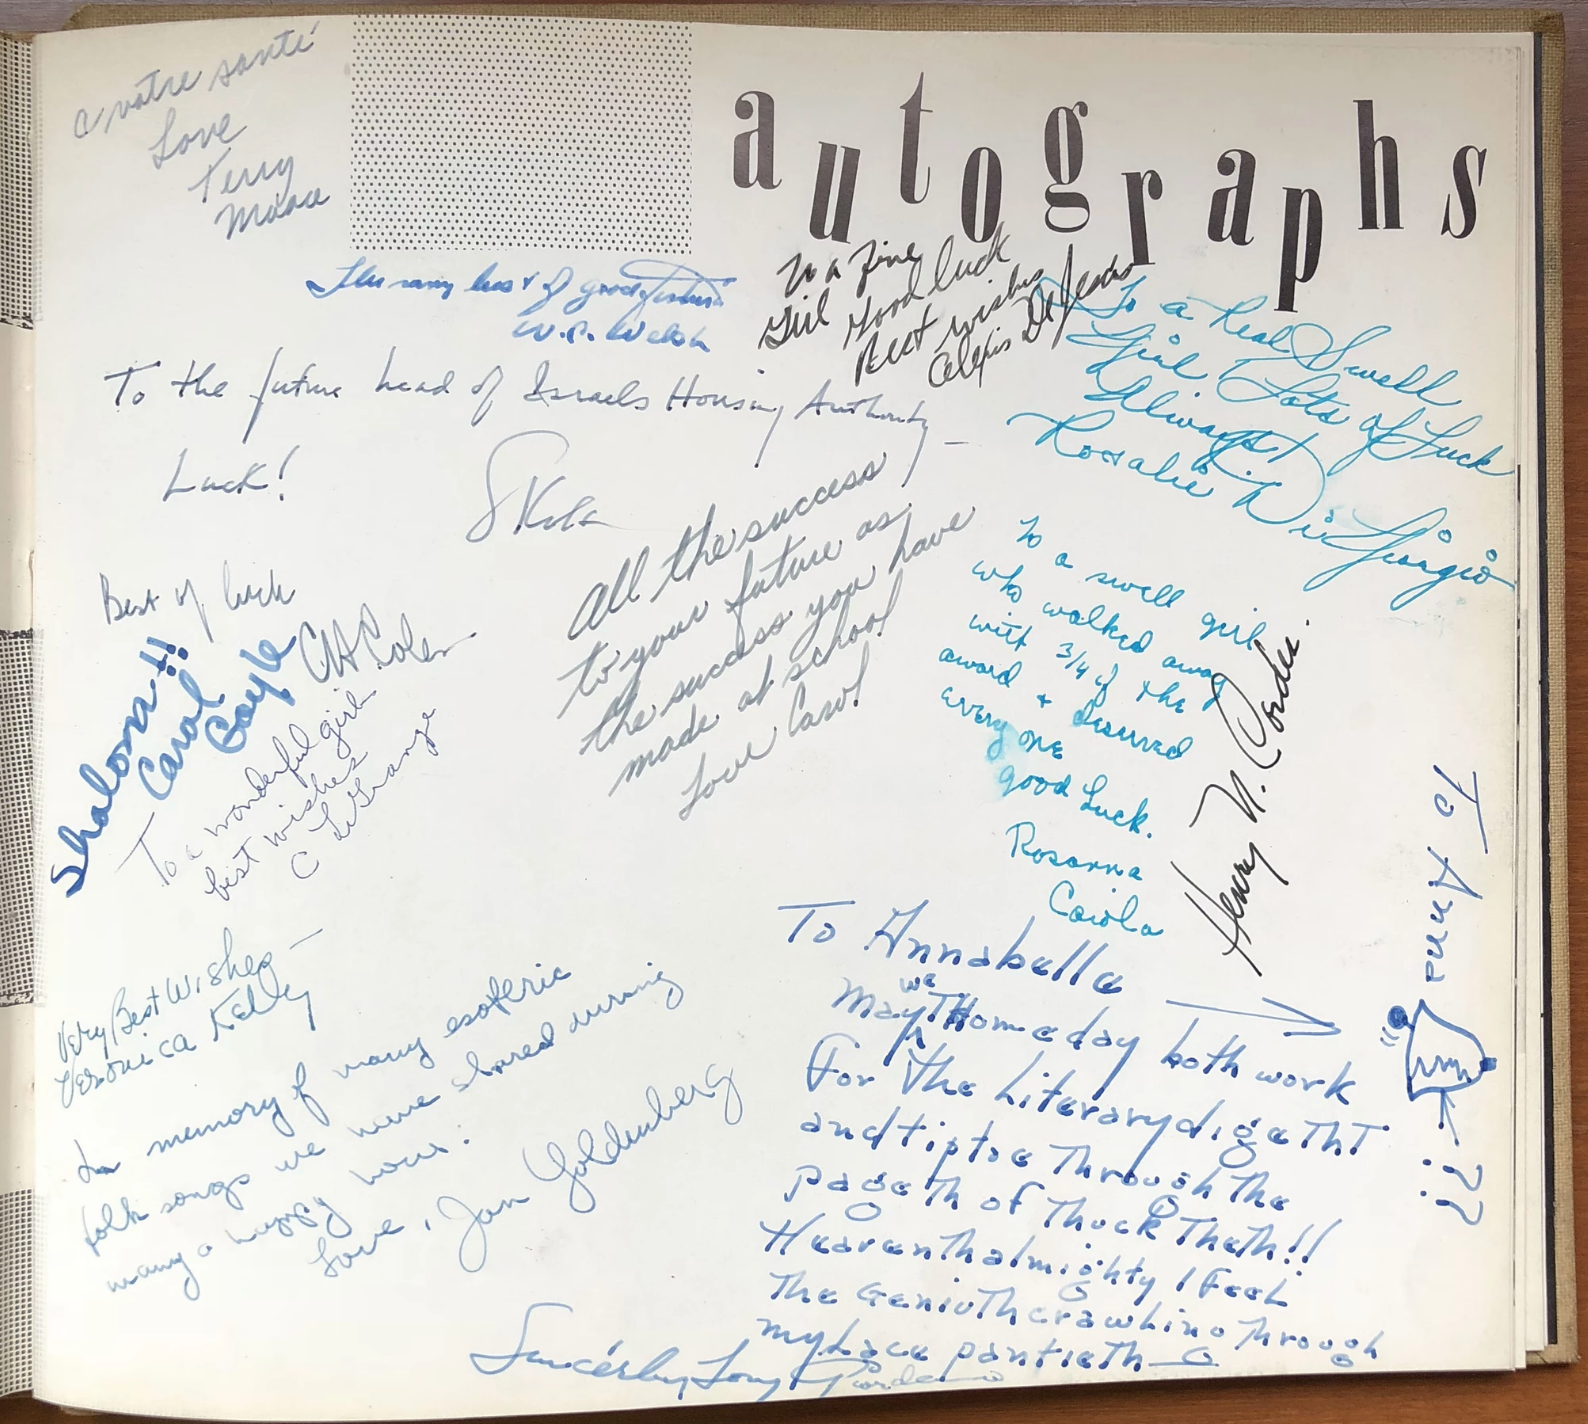 a votre santé
Love
Terry
autographs
best of good
W.P. Welsh
To a fine
Girl Good luck
Best wishes
Alexis De Jesus
To a Real Swell
Girl Lots of Luck
Always!
Rosalie Di Giorgio
To the future head of Israels Housing Authority—
Luck!
All the success
to your future as
the success you have
made at school
Love Carol
To a swell girl
who walked away
with 3/4 of the
award + deserved
every one
good Luck.
Rosanna
Caiola
Henry N. Corder.
Best of luck
Shalom!!
Carol
Gayle
To a wonderful girl
best wishes
C LaGrange
Very Best Wishes—
Veronica Kelly
In memory of many esoteric
folk songs we have shared during
many a happy hour.
Love, Jan Goldenberg
To Annabelle
May we Thomeday both work
For the Literary digetht
and tiptoe through the
pageth of Thucktheth!!
Heaventhalmighty I Feel
The Geniuth crawling through
my Lace pantieth
Sincerely, Tony Giordano
To Anna
??